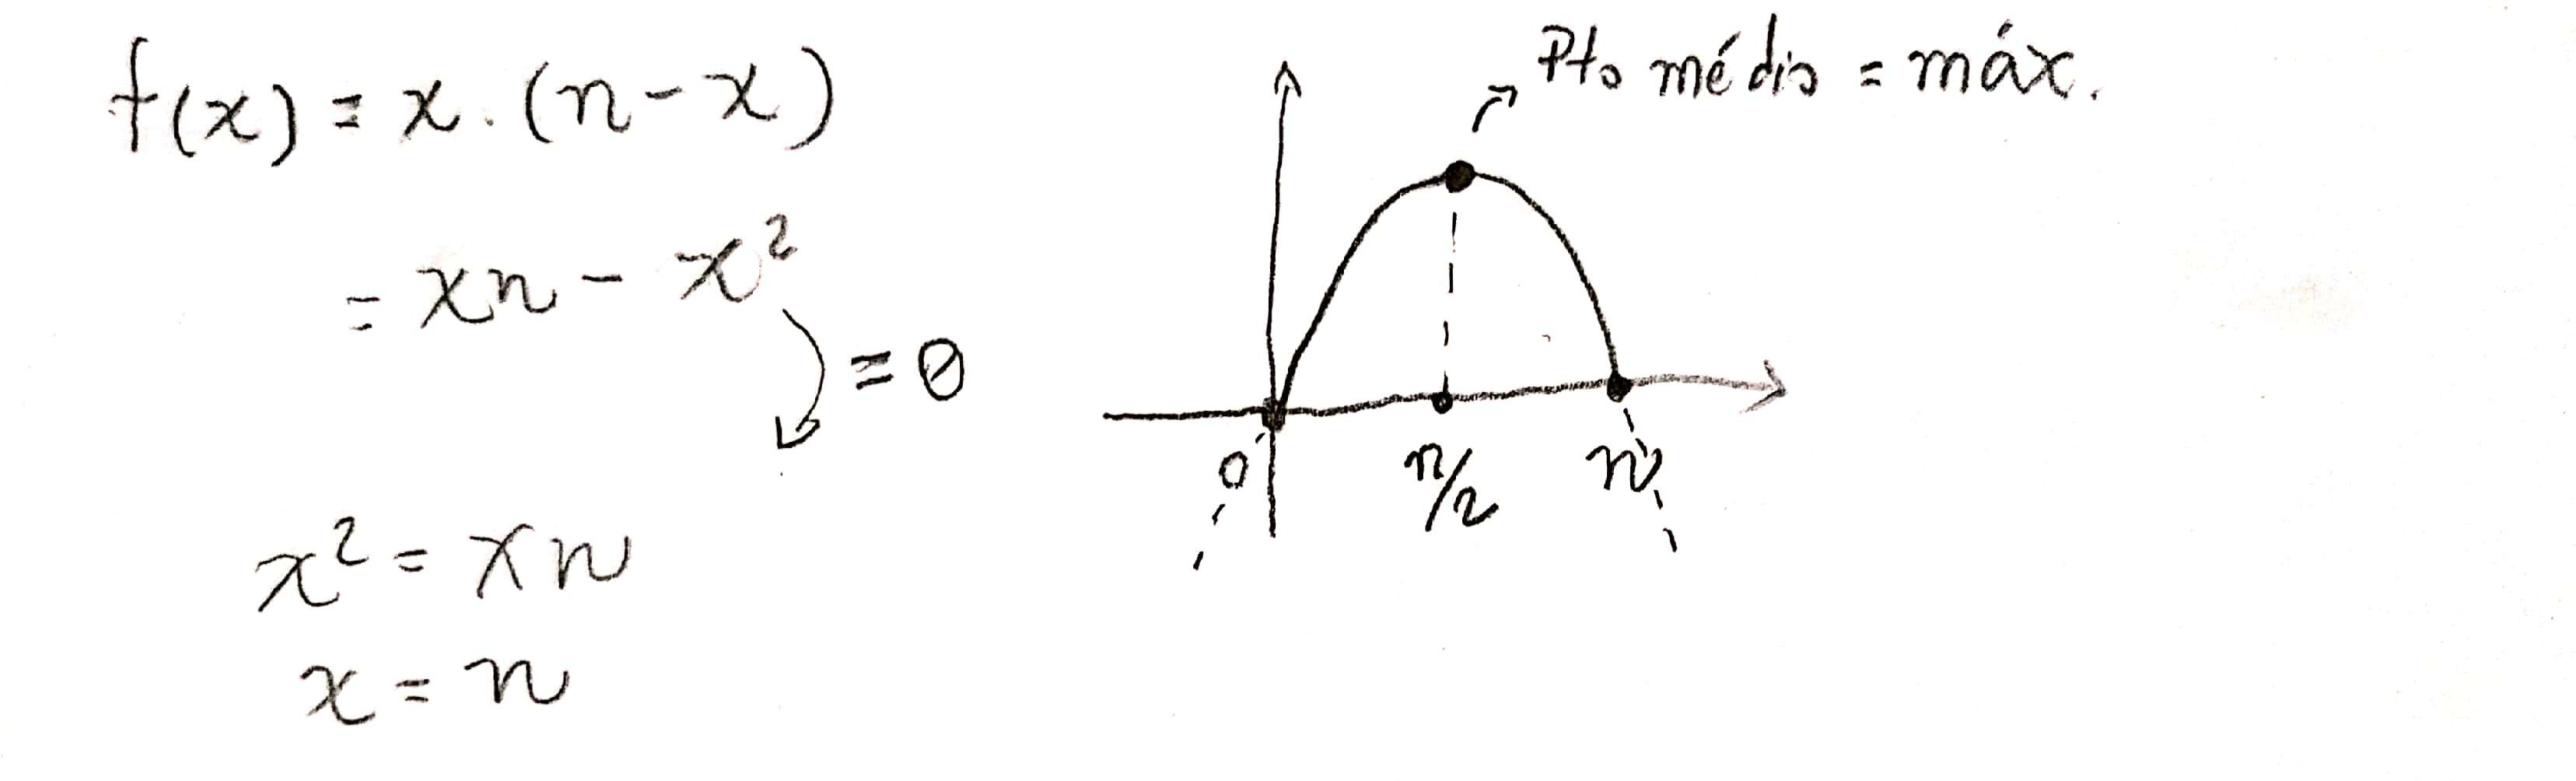 f(x) = x . (n - x)
= xn - x²
= 0
x² = xn
x = n
Pto médio = máx.
0 n/2 n